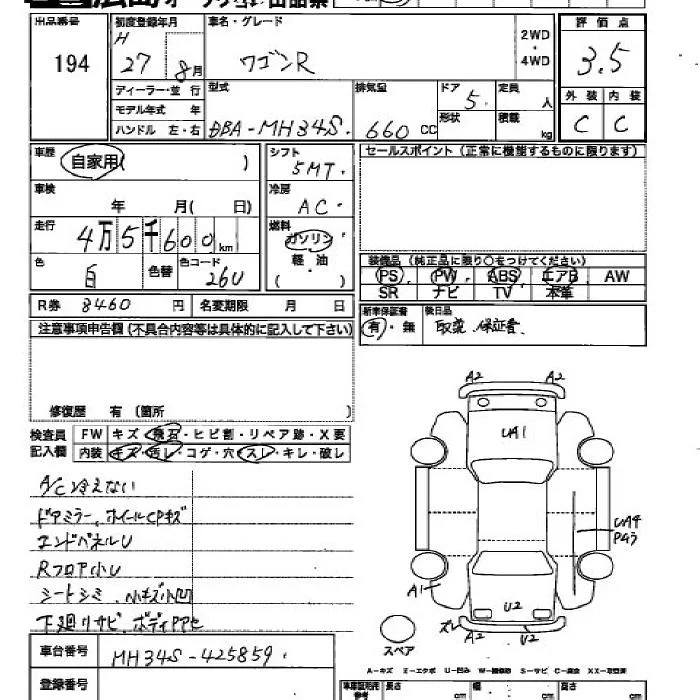 広島オークション出品票
出品番号 初度登録年月 車名・グレード 2WD・4WD 評価点
194 H 27 8月 ワゴンR 3.5
ディーラー・並行 型式 排気量 ドア 5 定員 人 外装 内装
モデル年式 年 形状 積載 kg
ハンドル 左・右 DBA-MH34S 660 CC C C
車歴 自家用( ) シフト 5MT セールスポイント(正常に機能するものに限ります)
車検 年 月( 日) 冷房 AC
走行 4万5千600km 燃料 ガソリン 軽・油
色 白 色替 色コード 26U
装備品(純正品に限り○をつけてください)
PS PW ABS エアB AW
SR ナビ TV 本革
R券 8460円 名変期限 月 日
新車保証書 有・無 後日品 取説、保証書、
注意事項申告欄(不具合内容等は具体的に記入して下さい)
修復歴 有(箇所 )
検査員 FW キズ・飛石・ヒビ割・リペア跡・X要
記入欄 内装 キズ・汚レ・コゲ・穴・スレ・キレ・破レ
A/C冷えない
ドアミラー、ホイールCPキズ
エンドパネルU
Rフロア小U
シートシミ、小キズ小凹
下廻りサビ、ボディPPセ
A2 A2
UA1
UA4
P43
A1
U2
ズレ A2 U2
スペア
車台番号 MH34S-425859
A-キズ E-エクボ U-凹み W-補修跡 S-サビ C-腐食 XX-取替済
登録番号
車庫証明用参考 長さ cm 幅 cm 高さ cm